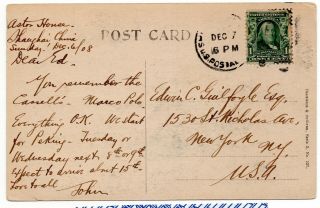 Astor House
Shanghai China
Sunday, Dec. 6/08
Dear Ed.
You remember the
Marco Polo
Everything O.K. We start
for Peking Tuesday or
Wednesday next, 8th or 9th
Expect to arrive about 15th.
to all
John
POST CARD
DEC 7
6 PM
U.S. POSTAL
Edwin C. Guilfoyle Esq.
1530 St. Nicholas Ave,
New York
N.Y.
U.S.A.